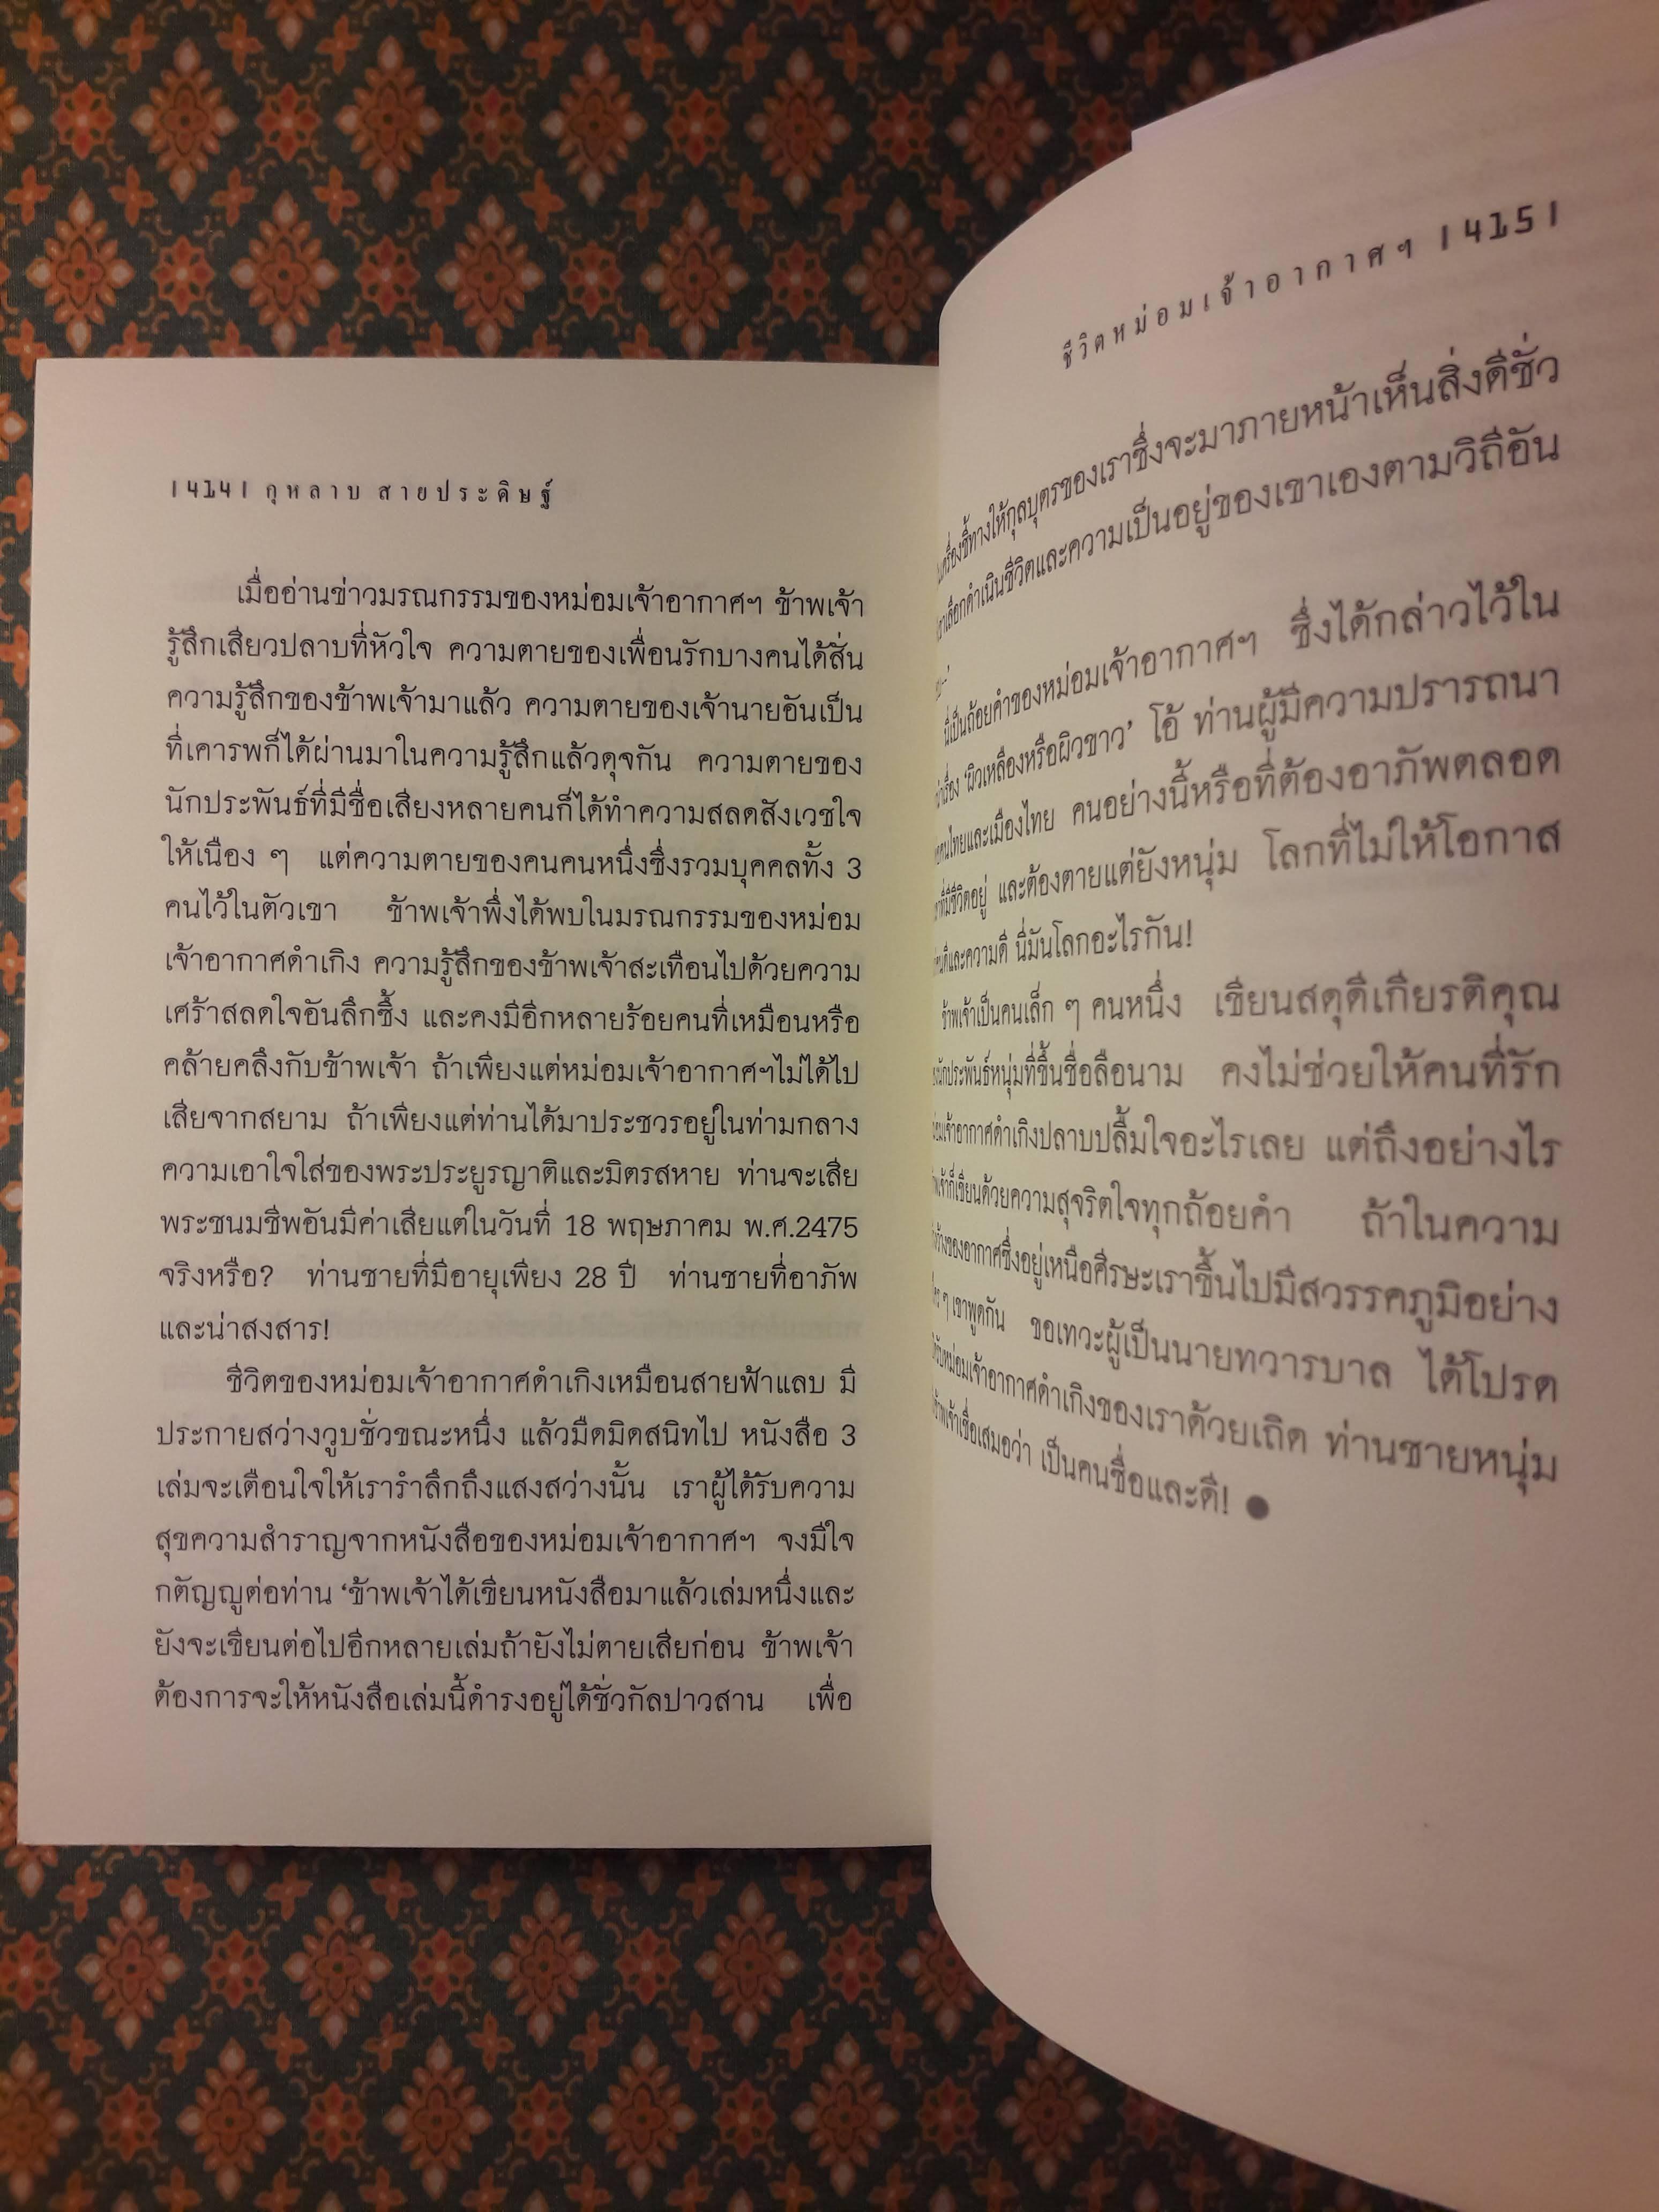 |414| กุหลาบ สายประดิษฐ์
เมื่ออ่านข่าวมรณกรรมของหม่อมเจ้าอากาศฯ ข้าพเจ้า
รู้สึกเสียวปลาบที่หัวใจ ความตายของเพื่อนรักบางคนได้สั่น
ความรู้สึกของข้าพเจ้ามาแล้ว ความตายของเจ้านายอันเป็น
ที่เคารพก็ได้ผ่านมาในความรู้สึกแล้วดุจกัน ความตายของ
นักประพันธ์ที่มีชื่อเสียงหลายคนก็ได้ทำความสลดสังเวชใจ
ให้เนือง ๆ แต่ความตายของคนคนหนึ่งซึ่งรวมบุคคลทั้ง 3
คนไว้ในตัวเขา ข้าพเจ้าพึ่งได้พบในมรณกรรมของหม่อม
เจ้าอากาศดำเกิง ความรู้สึกของข้าพเจ้าสะเทือนไปด้วยความ
เศร้าสลดใจอันลึกซึ้ง และคงมีอีกหลายร้อยคนที่เหมือนหรือ
คล้ายคลึงกับข้าพเจ้า ถ้าเพียงแต่หม่อมเจ้าอากาศฯไม่ได้ไป
เสียจากสยาม ถ้าเพียงแต่ท่านได้มาประชวรอยู่ในท่ามกลาง
ความเอาใจใส่ของพระประยูรญาติและมิตรสหาย ท่านจะเสีย
พระชนมชีพอันมีค่าเสียแต่ในวันที่ 18 พฤษภาคม พ.ศ.2475
จริงหรือ? ท่านชายที่มีอายุเพียง 28 ปี ท่านชายที่อาภัพ
และน่าสงสาร!
ชีวิตของหม่อมเจ้าอากาศดำเกิงเหมือนสายฟ้าแลบ มี
ประกายสว่างวูบชั่วขณะหนึ่ง แล้วมืดมิดสนิทไป หนังสือ 3
เล่มจะเตือนใจให้เรารำลึกถึงแสงสว่างนั้น เราผู้ได้รับความ
สุขความสำราญจากหนังสือของหม่อมเจ้าอากาศฯ จงมีใจ
กตัญญูต่อท่าน ‘ข้าพเจ้าได้เขียนหนังสือมาแล้วเล่มหนึ่งและ
ยังจะเขียนต่อไปอีกหลายเล่มถ้ายังไม่ตายเสียก่อน ข้าพเจ้า
ต้องการจะให้หนังสือเล่มนี้ดำรงอยู่ได้ชั่วกัลปาวสาน เพื่อ
ชีวิตหม่อมเจ้าอากาศฯ |415|
ชี้ทางให้กุลบุตรของเราซึ่งจะมาภายหน้าเห็นสิ่งดีชั่ว
ดำเนินชีวิตและความเป็นอยู่ของเขาเองตามวิถีอัน
นี่เป็นถ้อยคำของหม่อมเจ้าอากาศฯ ซึ่งได้กล่าวไว้ใน
เรื่อง ‘ผิวเหลืองหรือผิวขาว’ โอ้ ท่านผู้มีความปรารถนา
คนไทยและเมืองไทย คนอย่างนี้หรือที่ต้องอาภัพตลอด
ที่มีชีวิตอยู่ และต้องตายแต่ยังหนุ่ม โลกที่ไม่ให้โอกาส
และความดี นี่มันโลกอะไรกัน!
ข้าพเจ้าเป็นคนเล็ก ๆ คนหนึ่ง เขียนสดุดีเกียรติคุณ
นักประพันธ์หนุ่มที่ขึ้นชื่อลือนาม คงไม่ช่วยให้คนที่รัก
เจ้าอากาศดำเกิงปลาบปลื้มใจอะไรเลย แต่ถึงอย่างไร
ก็เขียนด้วยความสุจริตใจทุกถ้อยคำ ถ้าในความ
ของอากาศซึ่งอยู่เหนือศีรษะเราขึ้นไปมีสวรรคภูมิอย่าง
ๆ เขาพูดกัน ขอเทวะผู้เป็นนายทวารบาล ได้โปรด
หม่อมเจ้าอากาศดำเกิงของเราด้วยเถิด ท่านชายหนุ่ม
ข้าพเจ้าเชื่อเสมอว่า เป็นคนซื่อและดี! ●